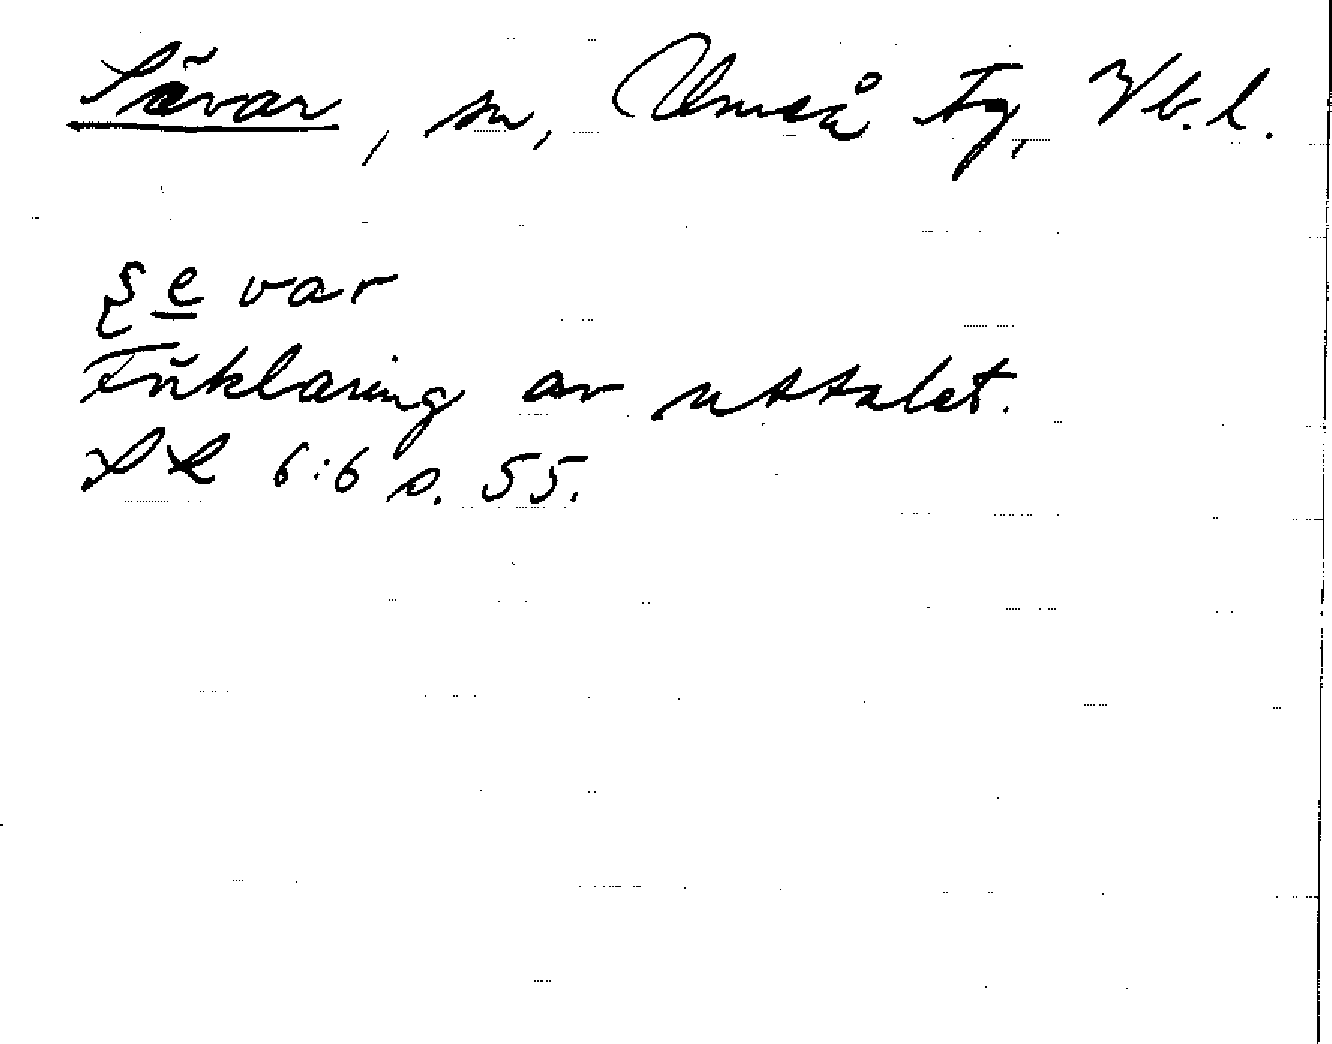 Sävar, sn, Umeå tg, Vb.l.
se var
Förklaring av uttalet.
6:6 s. 55.